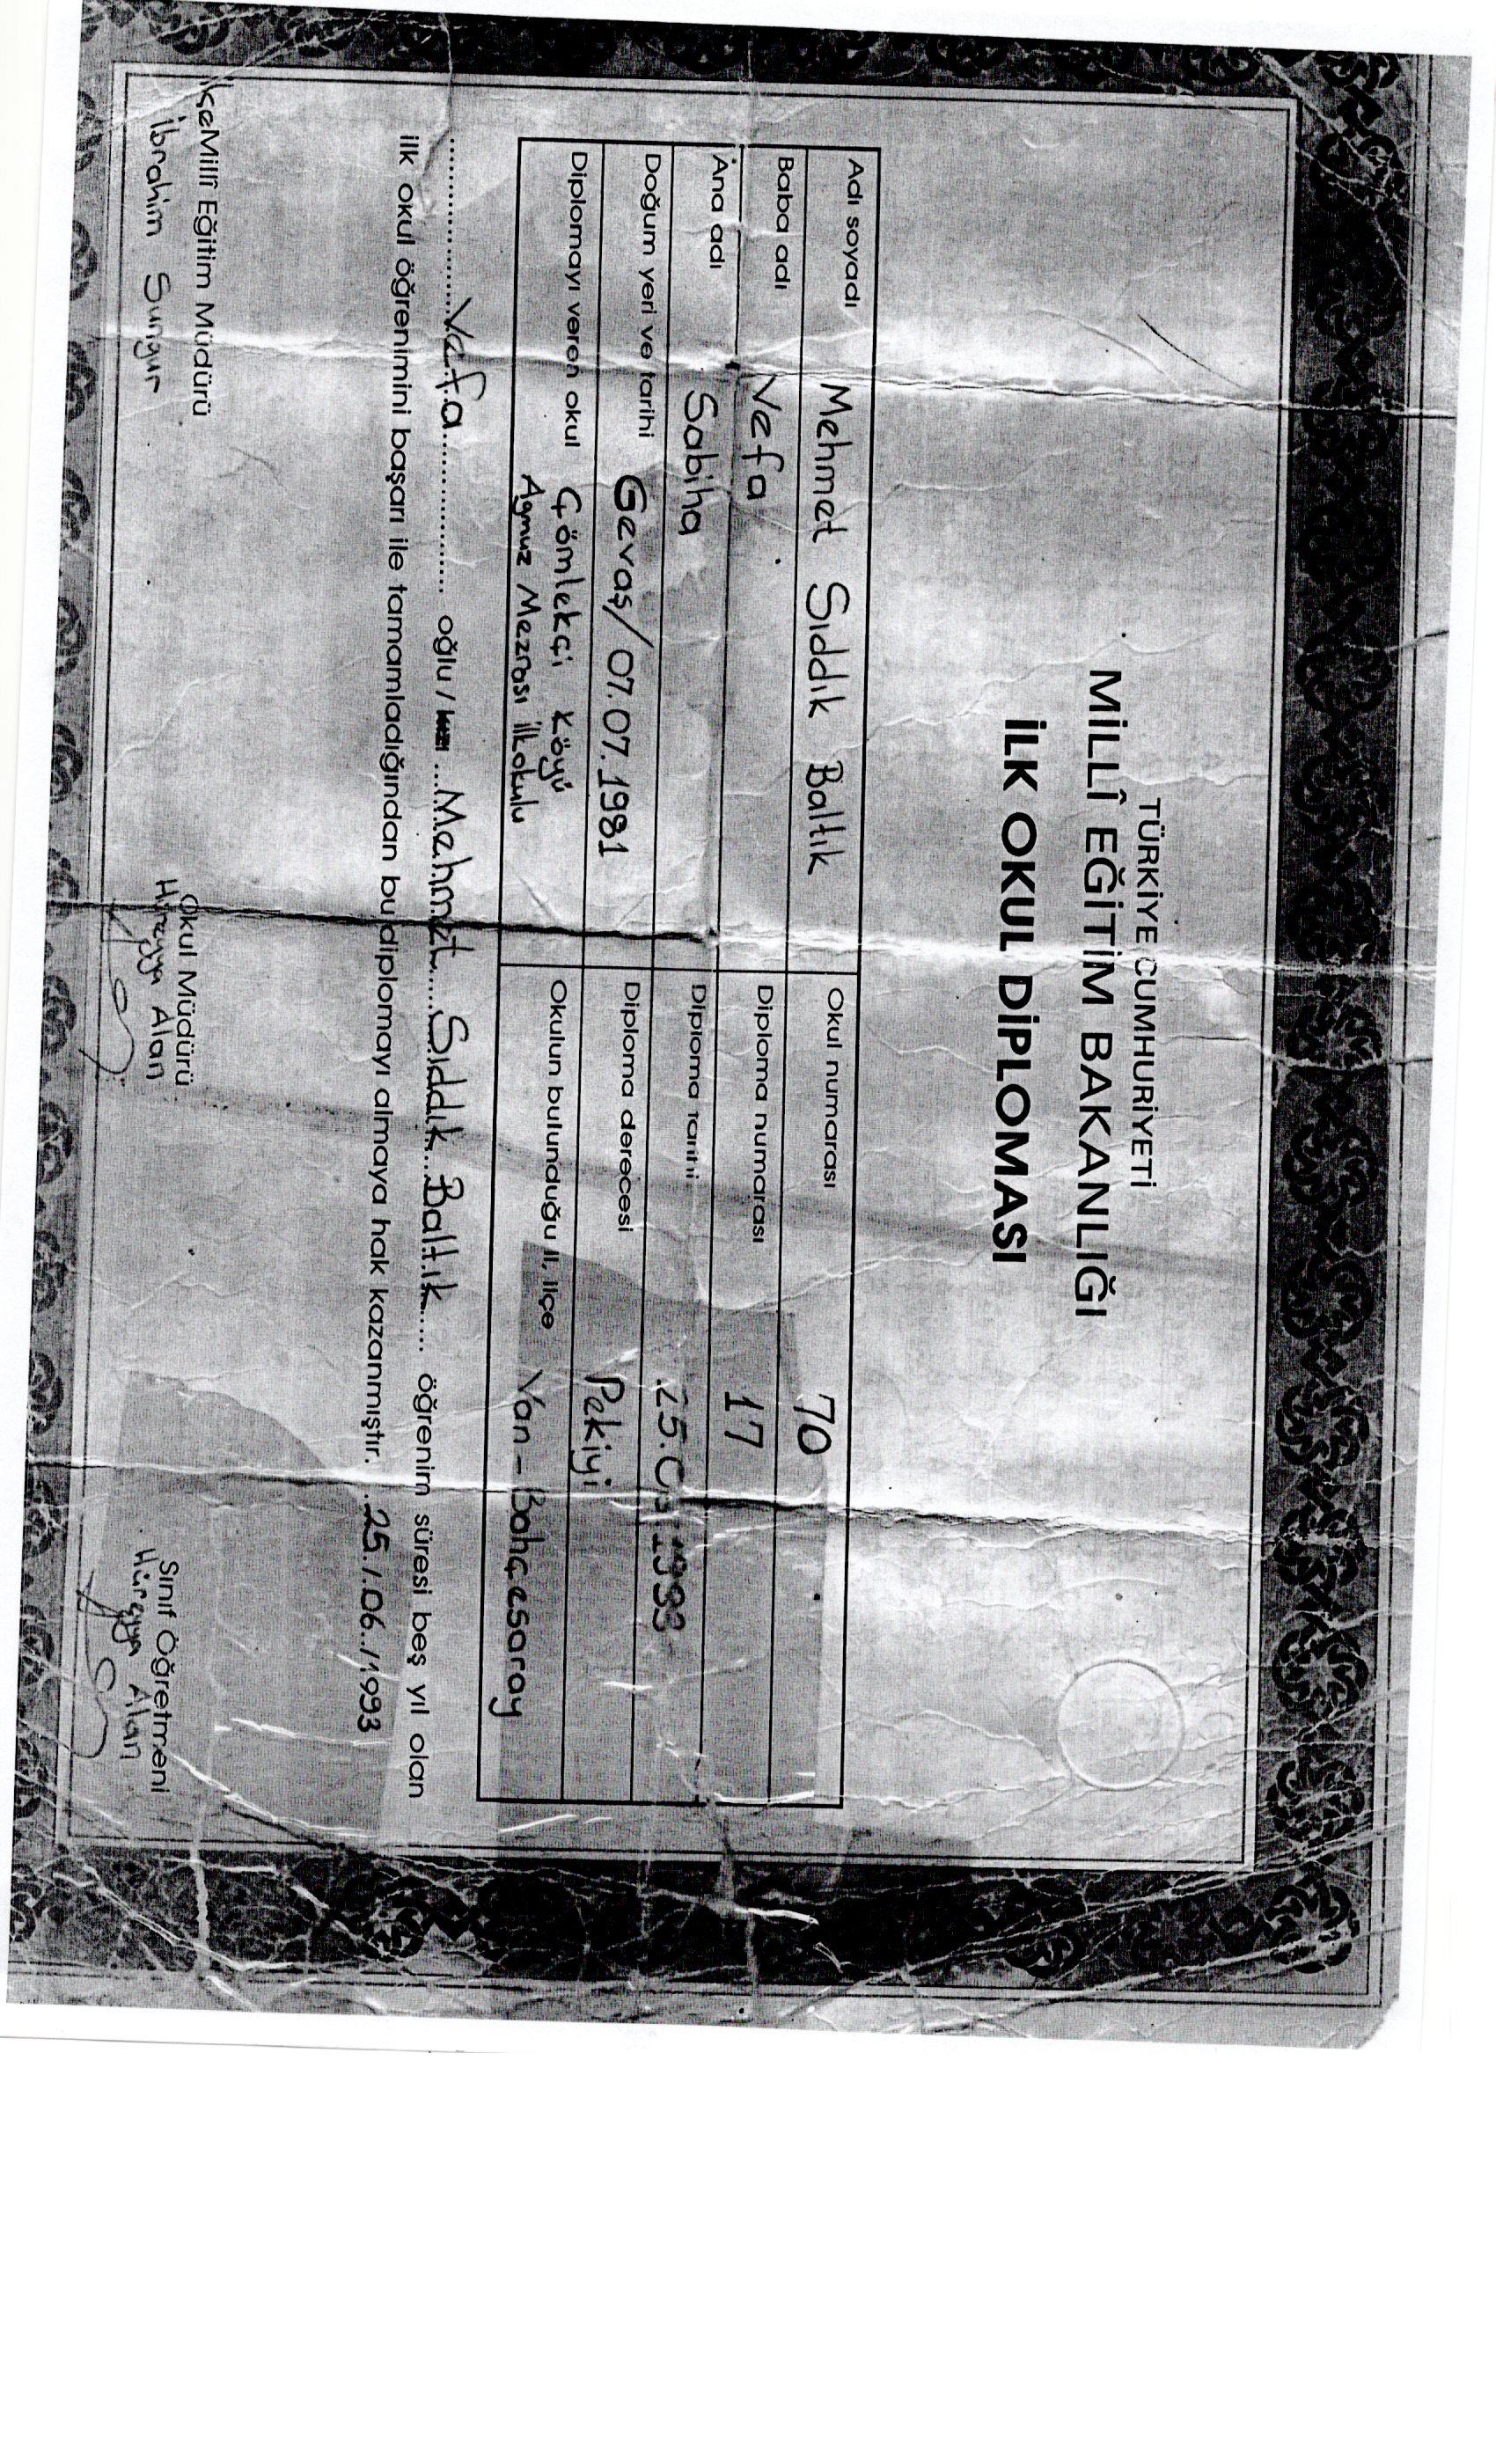 TÜRKİYE CUMHURİYETİ
MİLLÎ EĞİTİM BAKANLIĞI
İLK OKUL DİPLOMASI
Adı soyadı Mehmet Sıddık Baltık
Okul numarası 70
Baba adı Vefa
Diploma numarası 17
Ana adı Sabiha
Diploma tarihi 25. 1993
Doğum yeri ve tarihi Gevaş/07.07.1981
Diploma derecesi Pekiyi
Diplomayı veren okul Çömlekçi Köyü
Mezrası İlkokulu
Okulun bulunduğu il, ilçe Van - Bahçesaray
Vefa oğlu / kızı Mehmet Sıddık Baltık öğrenim süresi beş yıl olan
ilk okul öğrenimini başarı ile tamamladığından bu diplomayı almaya hak kazanmıştır. 25./.06../1993
Millî Eğitim Müdürü
İbrahim Sungur
Okul Müdürü
Alan
Sınıf Öğretmeni
Alan